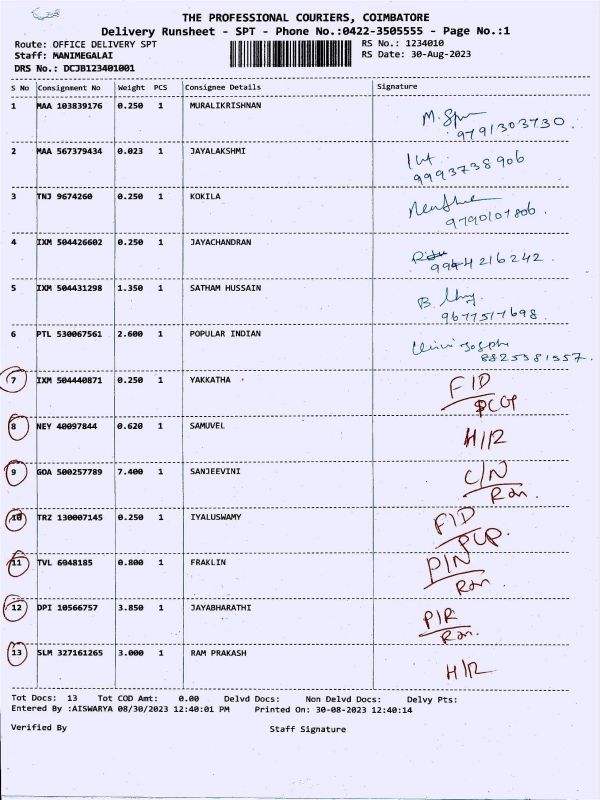 THE PROFESSIONAL COURIERS, COIMBATORE
Delivery Runsheet - SPT - Phone No.:0422-3505555 - Page No.:1
Route: OFFICE DELIVERY SPT
RS No.: 1234010
Staff: MANIMEGALAI
RS Date: 30-Aug-2023
DRS No.: DCJB123401001
S No Consignment No Weight PCS Consignee Details Signature
1 MAA 103839176 0.250 1 MURALIKRISHNAN
9791303730.
2 MAA 567379434 0.023 1 JAYALAKSHMI
9993738906
3 TNJ 9674260 0.250 1 KOKILA
9790107806.
4 IXM 504426602 0.250 1 JAYACHANDRAN
9944216242.
5 IXM 504431298 1.350 1 SATHAM HUSSAIN
9677517698.
6 PTL 530067561 2.600 1 POPULAR INDIAN
8825381557.
7 IXM 504440871 0.250 1 YAKKATHA F/D
8 NEY 40097844 0.620 1 SAMUVEL H/R
9 GOA 500257789 7.400 1 SANJEEVINI C/N
Ran.
10 TRZ 130007145 0.250 1 IYALUSWAMY F/D
PCP.
11 TVL 6048185 0.800 1 FRAKLIN P/N
Ran.
12 DPI 10566757 3.850 1 JAYABHARATHI P/R
Ran.
13 SLM 327161265 3.000 1 RAM PRAKASH H/R
Tot Docs: 13 Tot COD Amt: 0.00 Delvd Docs: Non Delvd Docs: Delvy Pts:
Entered By :AISWARYA 08/30/2023 12:40:01 PM Printed On: 30-08-2023 12:40:14
Verified By Staff Signature